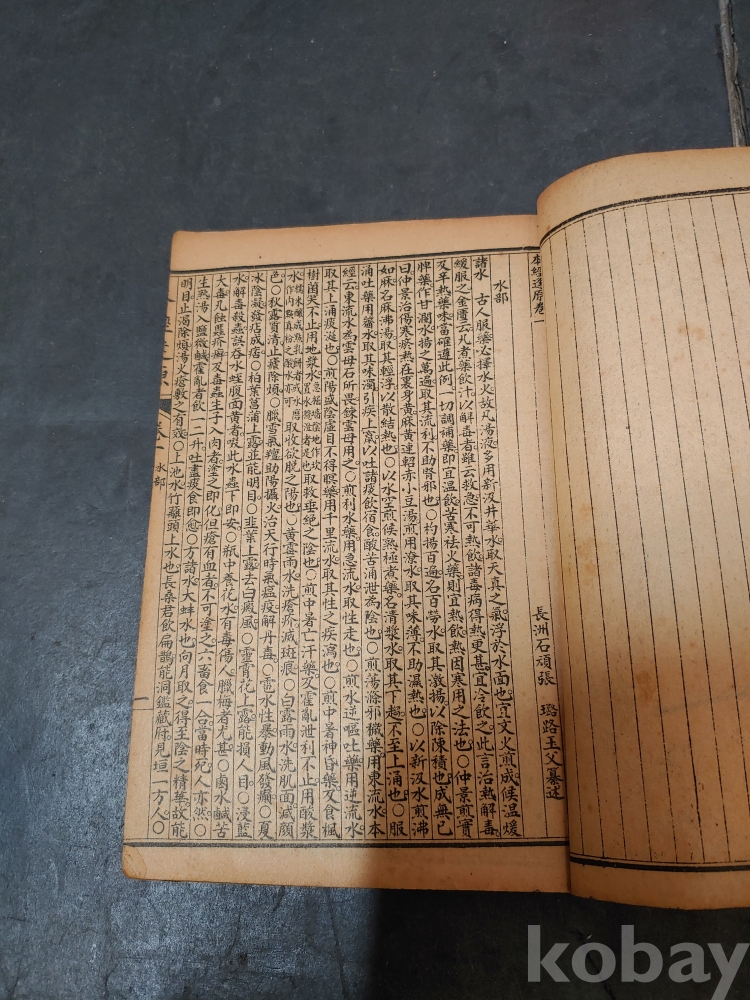 本經逢原卷一
長洲石頑張　璐路玉父纂述
水部
諸水　古人服藥必擇水火故凡湯液多用新汲井華水取天真之氣浮於水面也宜文火煎成候温煖
緩服之金匱云凡煮藥飲汁以解毒者雖云救急不可熱飲諸毒病得熱更甚宜冷飲之此言治熱解毒
及辛熱藥味當確遵此例一切調補藥即宜温飲苦寒祛火藥則宜熱飲熱因寒用之法也○仲景煎實
脾藥作甘瀾水揚之萬遍取其流利不助腎邪也○杓揚百遍名百勞水取其激揚以除陳積也成無己
曰仲景治傷寒瘀熱在裏身黄麻黄連軺赤小豆湯煎用潦水取其味薄不助濕熱也○以新汲水煎沸
如麻石麻沸湯取其輕浮以散結熱也○以水空煎候熱極煮藥名清漿水取其下趨不至上涌也○服
涌吐藥用虀水取其味濁引疾上竄以吐諸痰飲宿食酸苦涌泄為陰也○煎蕩滌邪穢藥用東流水本
經云東流水為雲母石所畏鍊雲母用之○煎利水藥用急流水取性走也○煎水逆嘔吐藥用逆流水
取其上涌痰涎也○煎陽盛陰虚目不得瞑藥用千里流水取其性之疾瀉也○煎中暑神昏藥及食楓
樹菌哭不止用地漿水急於墻陰地作坎置水攪澄者是也取救垂絶之陰也○煎中暑亡汗藥及霍亂泄利不止用酸漿
水糯米釀成熟乳餅者或水磨作内點真粉之酸水亦可取收欲脱之陽也○黄雲雨水洗瘡疥滅斑痕○白露雨水洗肌面減顔
色○秋露質清止瘧除煩○臘雪氣羶助陽攝火治天行時氣瘟疫解丹毒○雹水性暴動風發癲○夏
冰陰凝發痁成痞○柏葉菖蒲上露並能明目○韭葉上露去白癜風○靈霄花上露能損人目○浸藍
水解毒殺蟲誤吞水蛭腹面黄者吸此水蟲下即安○瓶中養花水有毒傷人臘梅者尤甚○鹵水鹹苦
大毒凡蝕蟲疥癬及毒蟲生子入肉者塗之即化但瘡有血者不可塗之六畜食一合當時死人亦然○
生熟湯入鹽微鹹霍亂者飲一二升吐盡痰食即愈○方諸水大蚌水也向月取之得至陰之精華故能
明目止渴除煩湯火瘡敷之有效○上池水竹籬頭上水也長桑君飲扁鵲能洞鑑藏府見垣一方人○
卷一　水部
一
kobay